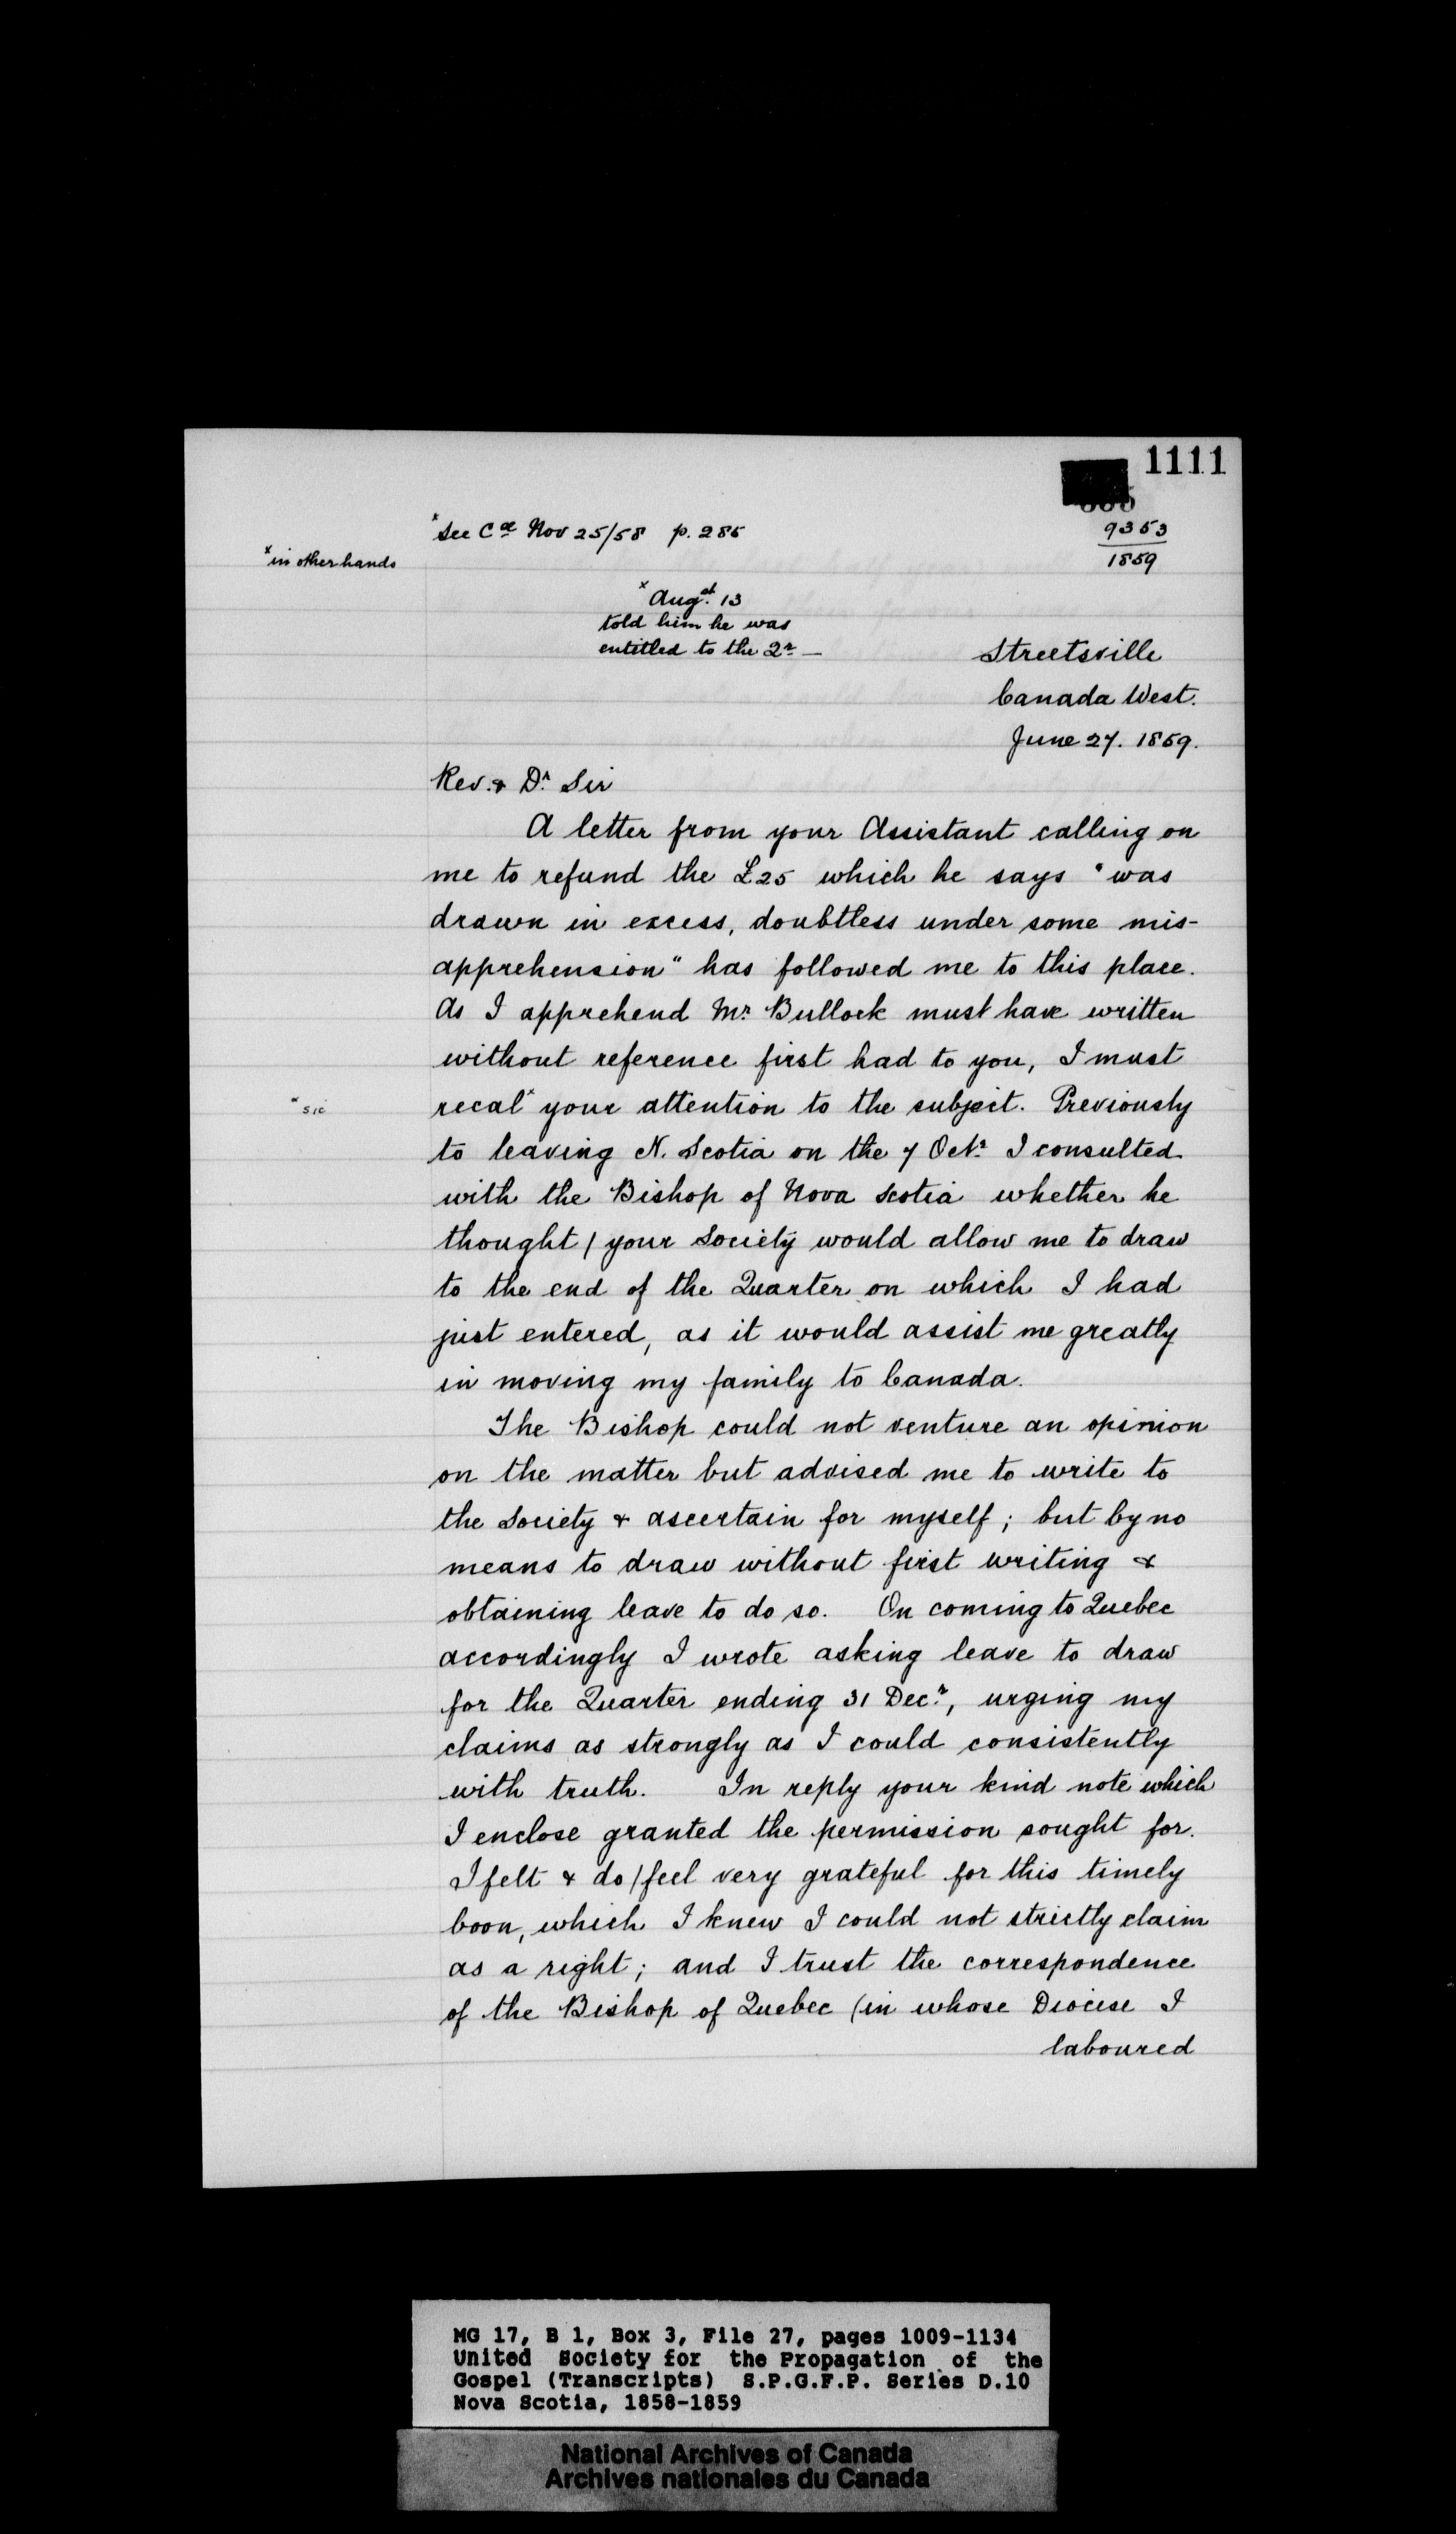 1111
9353
1859
x See Cᵒᵉ Nov 25/58 p. 285
x in other hands
x Augˢᵗ. 13
told him he was
entitled to the Qʳ —
Streetsville
Canada West.
June 27. 1859.
Rev. & Dʳ. Sir
A letter from your Assistant calling on
me to refund the £25 which he says "was
drawn in excess, doubtless under some mis-
apprehension" has followed me to this place.
As I apprehend Mʳ Bullock must have written
without reference first had to you, I must
x sic
recal x your attention to the subject. Previously
to leaving N. Scotia on the 7 Octʳ. I consulted
with the Bishop of Nova Scotia whether he
thought / your Society would allow me to draw
to the end of the Quarter on which I had
just entered, as it would assist me greatly
in moving my family to Canada.
The Bishop could not venture an opinion
on the matter but advised me to write to
the Society & ascertain for myself; but by no
means to draw without first writing &
obtaining leave to do so. On coming to Quebec
accordingly I wrote asking leave to draw
for the Quarter ending 31 Decʳ, urging my
claims as strongly as I could consistently
with truth. In reply your kind note which
I enclose granted the permission sought for.
I felt & do / feel very grateful for this timely
boon, which I knew I could not strictly claim
as a right; and I trust the correspondence
of the Bishop of Quebec (in whose Diocese I
laboured
MG 17, B 1, Box 3, File 27, pages 1009-1134
United Society for the Propagation of the
Gospel (Transcripts) S.P.G.F.P. Series D.10
Nova Scotia, 1858-1859
National Archives of Canada
Archives nationales du Canada